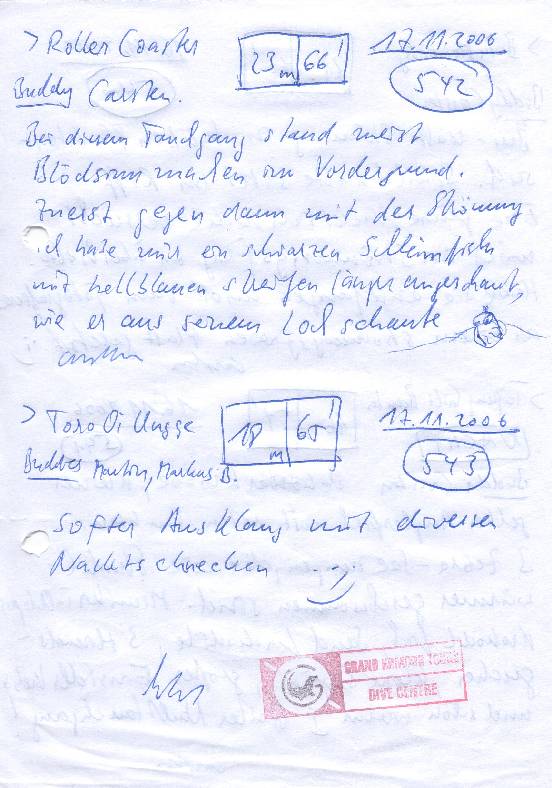 > Roller Coaster
23 m 66'
17.11.2006
542
Buddy Carsten.
Bei diesem Tauchgang stand meist
Blödsinn machen im Vordergrund.
Zuerst gegen dann mit der Strömung
ich habe mir ein schwarzen Schleimfisch
mit hellblauen streifen länger angeschaut,
wie er aus seinem Loch schaute
> Toro Oi Ungge
18 m 65'
17.11.2006
543
Buddies Martin, Markus B.
Softer Ausklang mit diversen
Nacktschnecken :-)
GRAND KOMODO TOURS
DIVE CENTRE